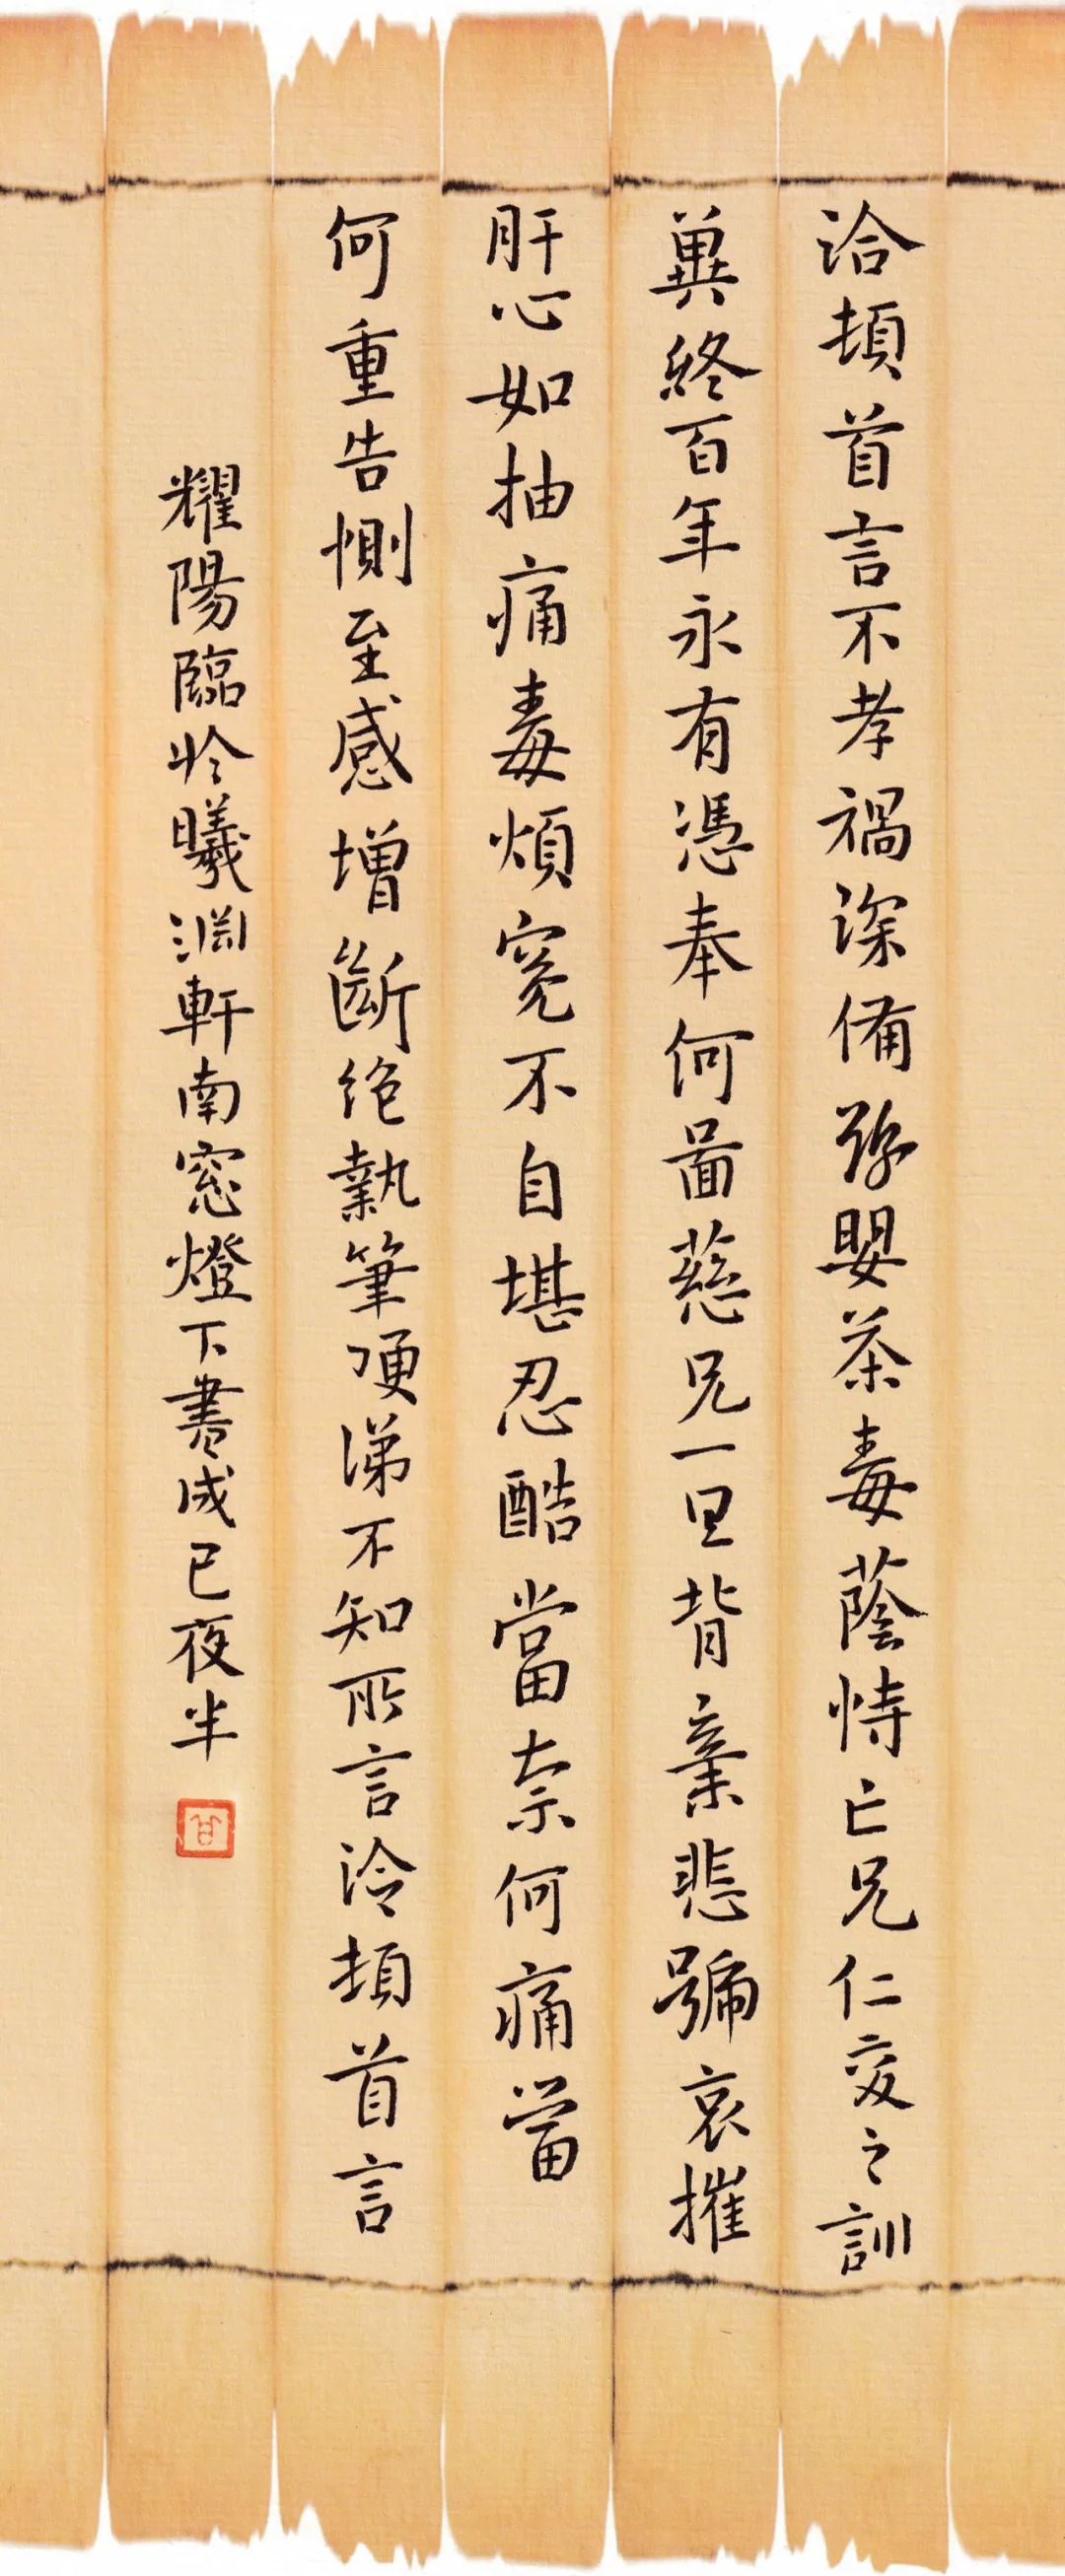 洽頓首言不孝禍深備豫嬰荼毒蔭恃亡兄仁愛之訓
兾終百年永有憑奉何啚慈兄一旦背棄悲號哀摧
肝心如抽痛毒煩冤不自堪忍酷當奈何痛當
何重告惻至感增斷絕執筆哽涕不知所言洽頓首言
耀陽臨於曦淵軒南窓燈下書成已夜半